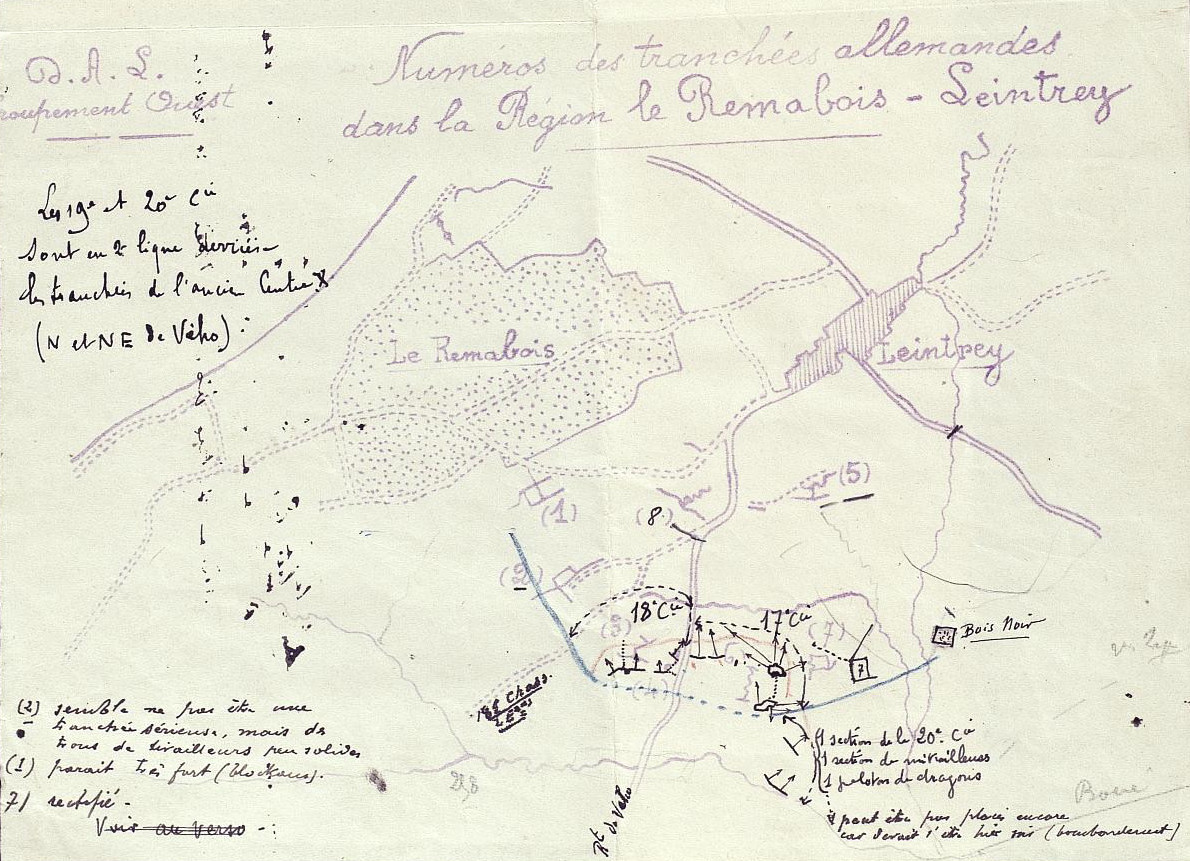 D. A. L.
Groupement Ouest
Numéros des tranchées allemandes
dans la Région le Remabois - Leintrey
Les 19e et 20e Cie
sont en 2e ligne derrière
les tranchées de l'ancien Centre
(N et NE de Vého).
Le Remabois
Leintrey
(1)
(8.)
(5)
(2)
18e Cie
17e Cie
(3)
(7)
(4)
7
Bois Noir
Chass.
(2) semble ne pas être une
tranchée sérieuse, mais des
trous de tirailleurs peu solides
(1) parait très fort (blockaus).
7) rectifié -
Voir au verso -
1 section de la 20e Cie
1 section de mitrailleuses
1 peloton de dragons
peut être pas placés encore
car devait l'être hier soir (bombardement)
Rte de Vého